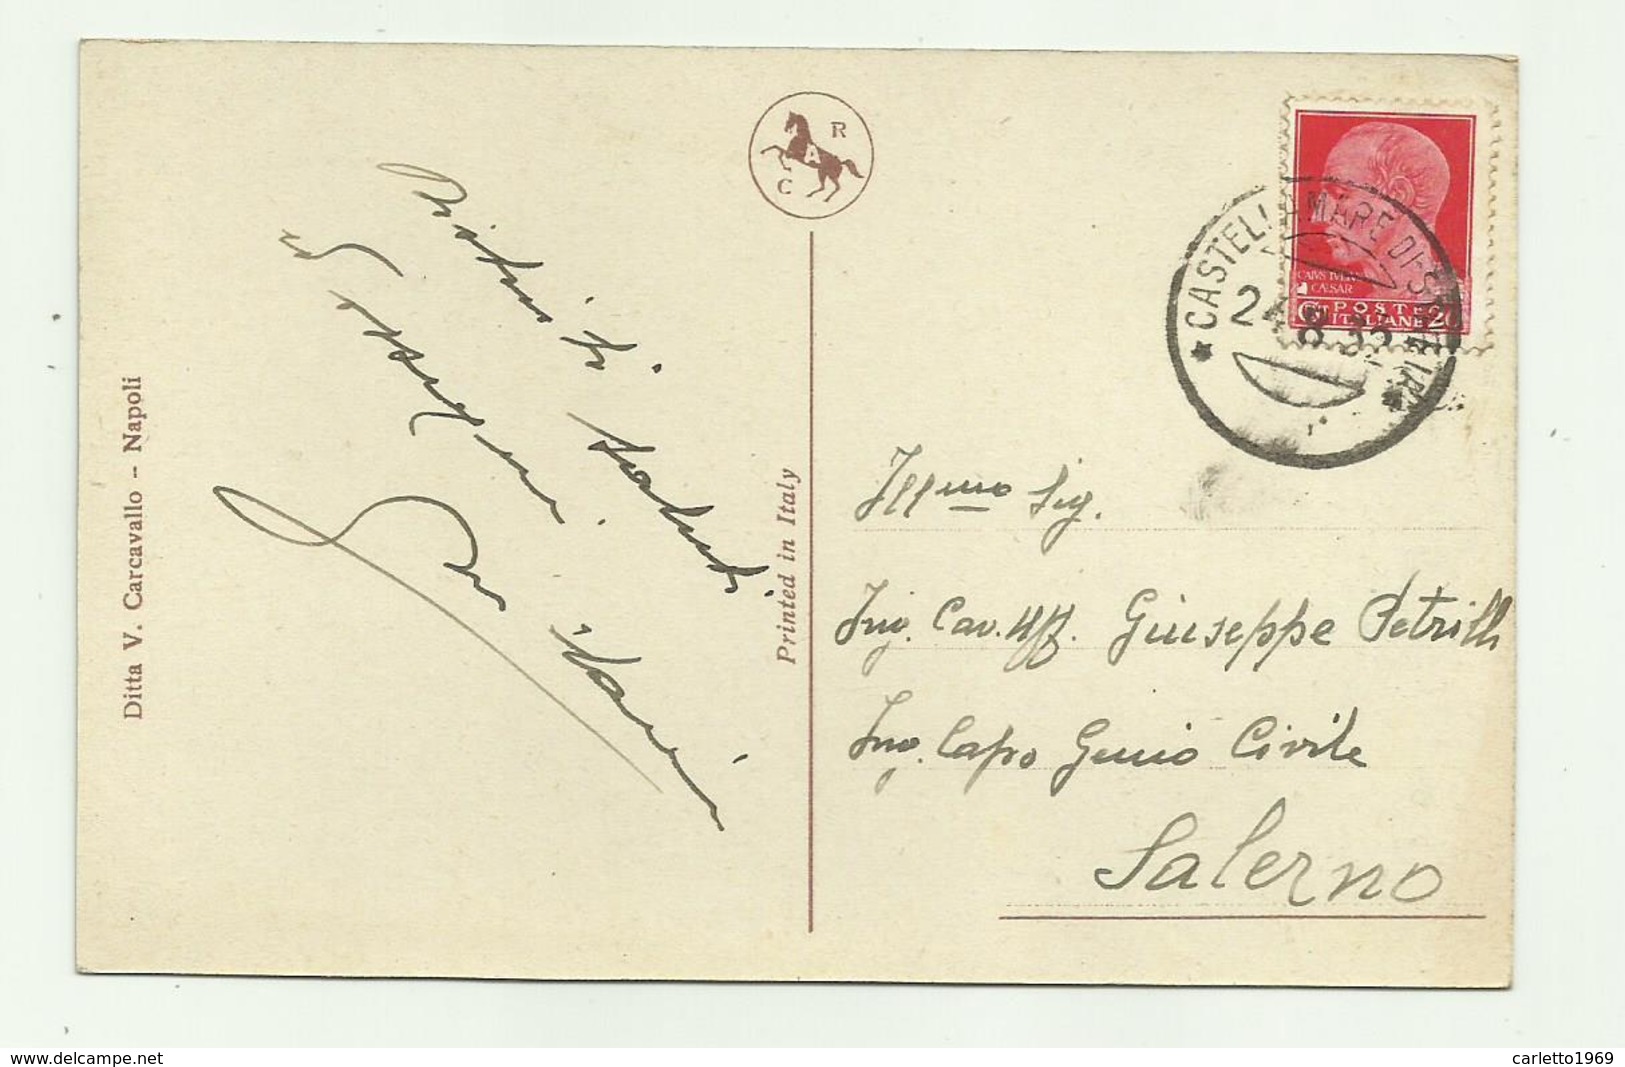 Ditta V. Carcavallo - Napoli
Distinti saluti
ed ossequi
Printed in Italy
R
A
C
CAIVS IVLIVS
CAESAR
POSTE
ITALIANE
CT 20
CASTELLAMMARE DI STABIA
24 8 35
Ill mo Sig.
Ing. Cav. Uff. Giuseppe Petrilli
Ing. Capo Genio Civile
Salerno
delcampe.net
carletto1969